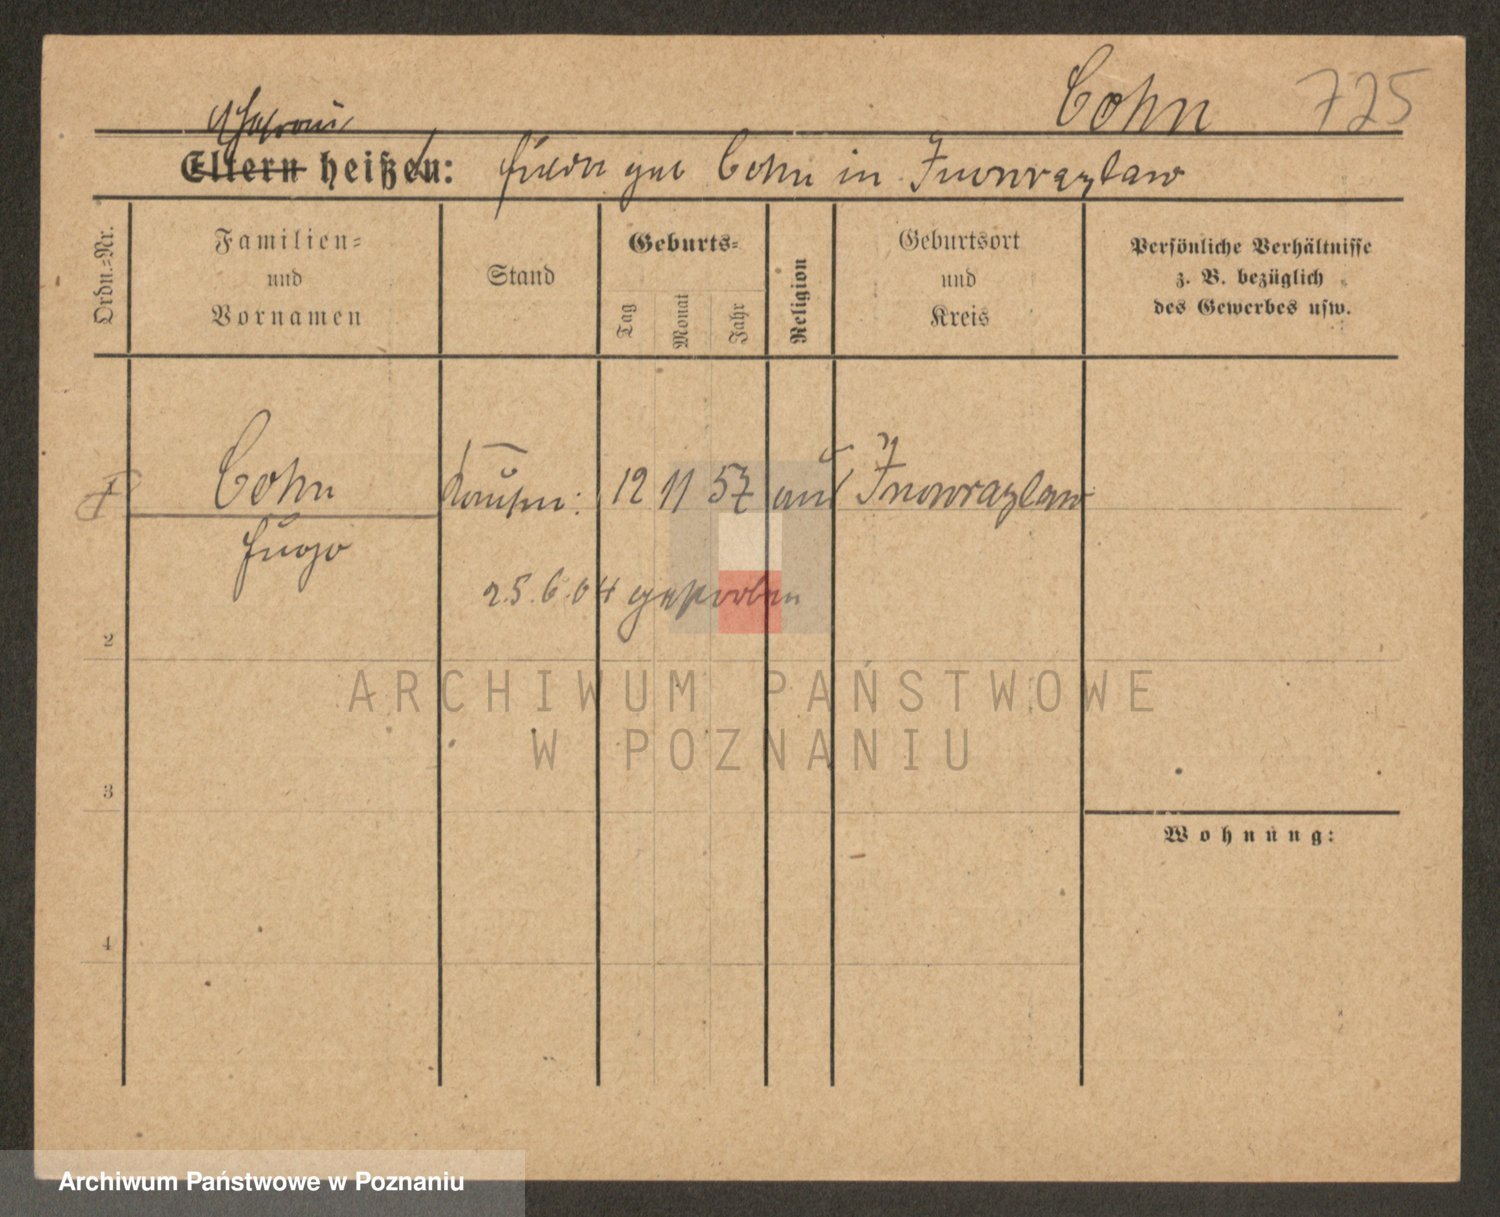 Cohn 725
Ehefrau
Eltern heißen: geb Cohn in Inowrazlaw
Ordn.-Nr.
Familien-
und
Vornamen
Stand
Geburts-
Tag
Monat
Jahr
Religion
Geburtsort
und
Kreis
Persönliche Verhältnisse
z. B. bezüglich
des Gewerbes usw.
1 Cohn Kaufm: 12 11 57 Inowrazlaw
Hugo
25.6.04 gestorben
2
3
4
Wohnung:
ARCHIWUM PAŃSTWOWE
W POZNANIU
Archiwum Państwowe w Poznaniu